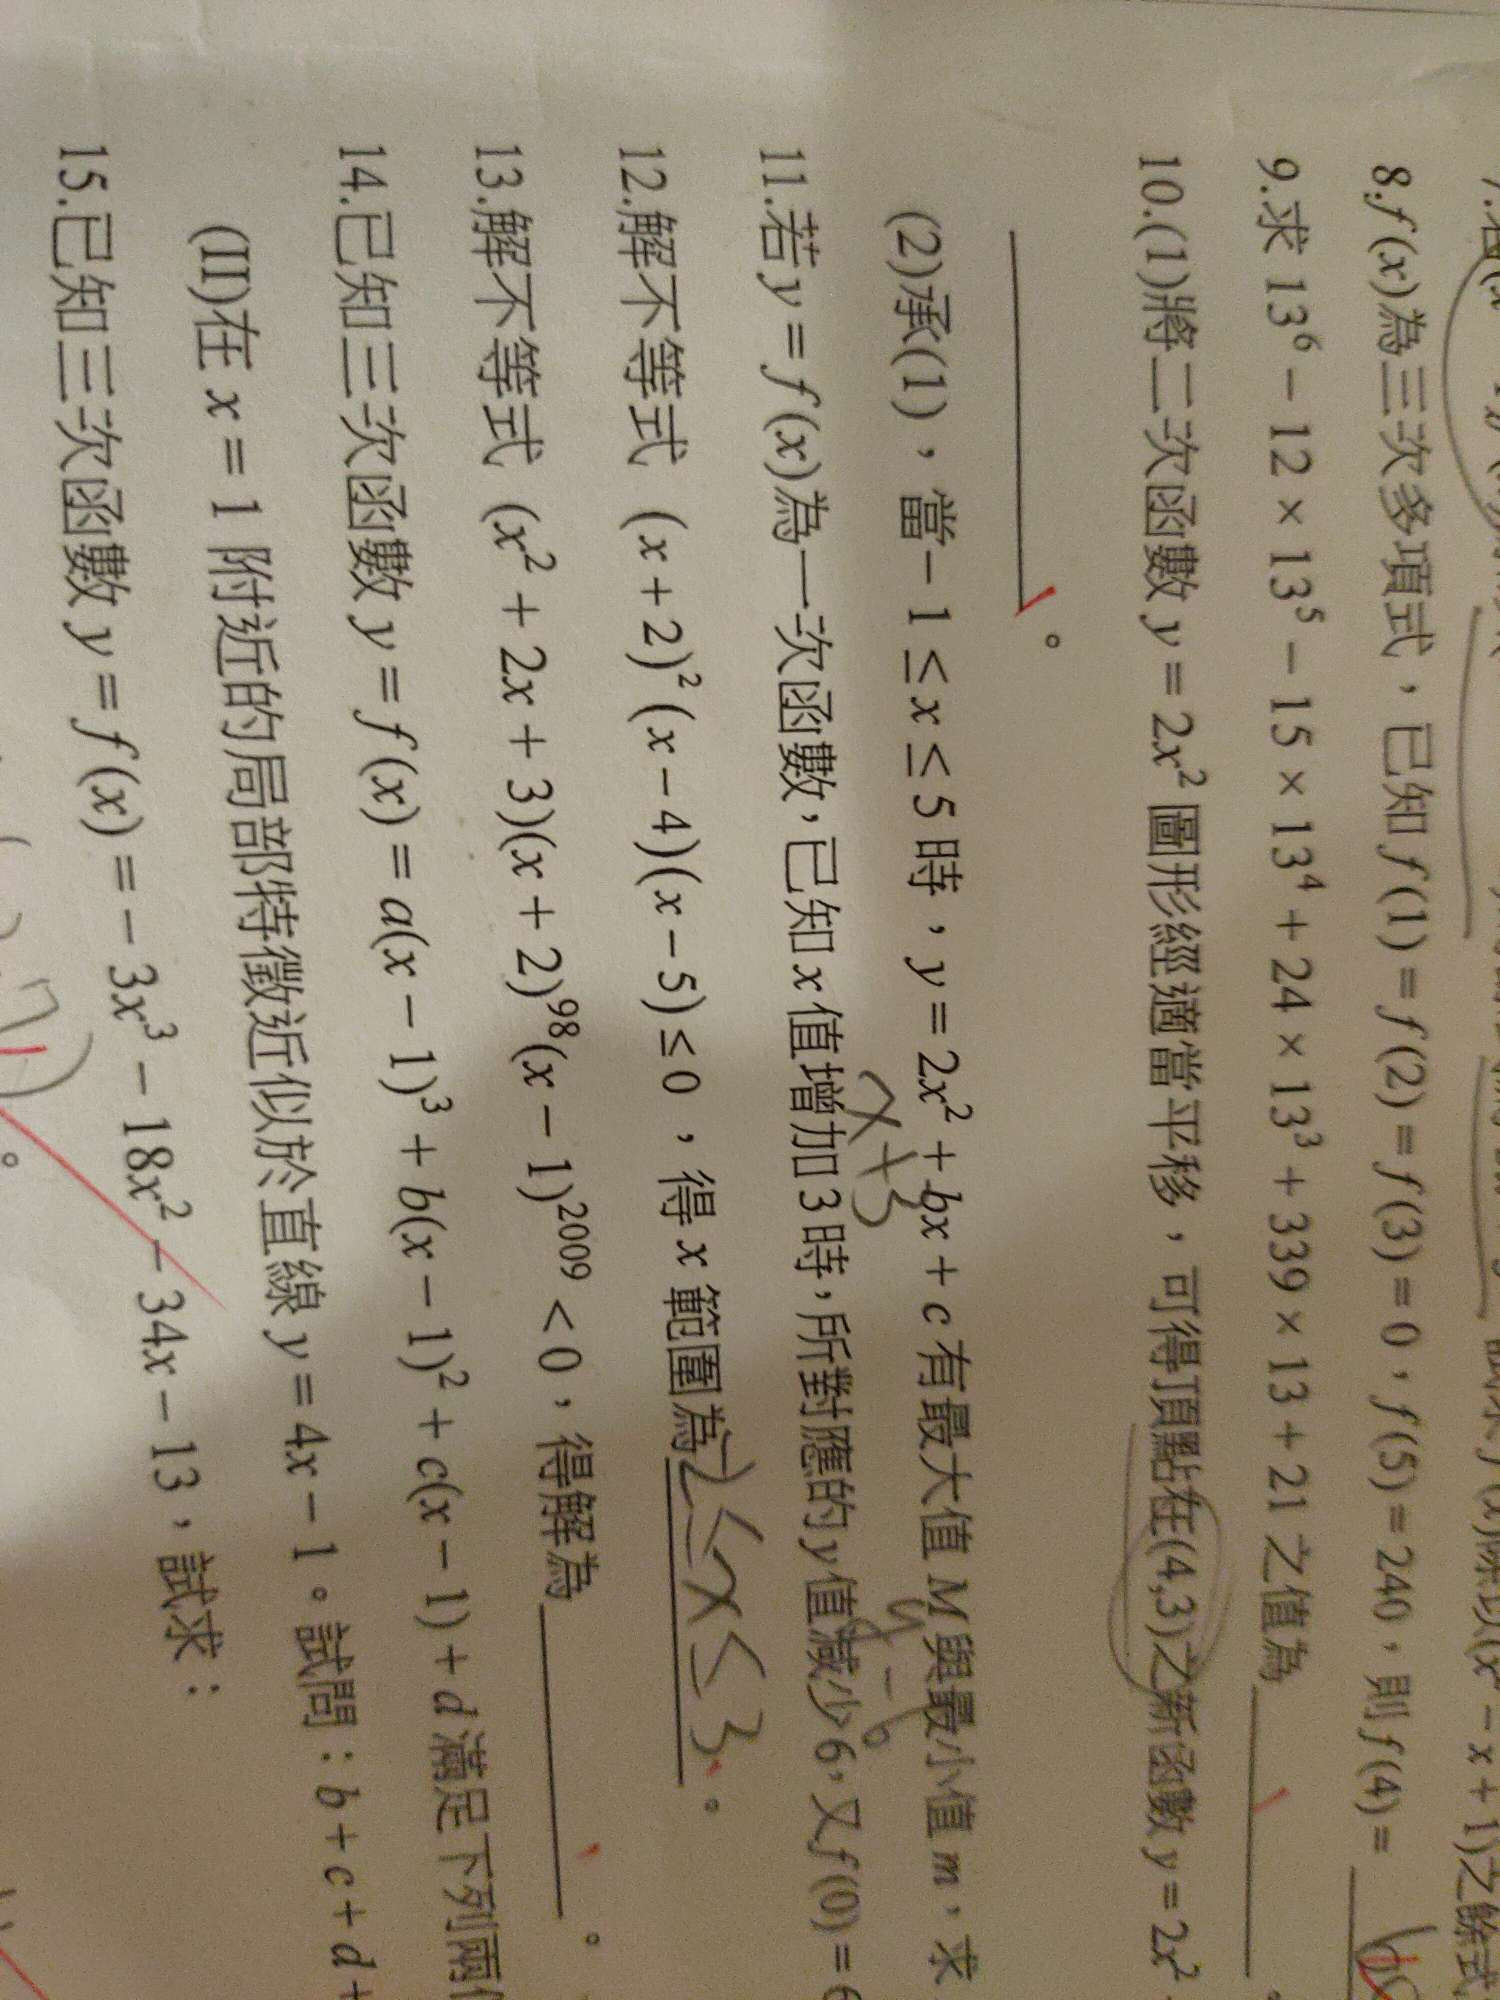 8.f(x)為三次多項式，已知 f(1) = f(2) = f(3) = 0，f(5) = 240，則 f(4) =
9.求 13⁶ − 12 × 13⁵ − 15 × 13⁴ + 24 × 13³ + 339 × 13 + 21 之值為
10.(1)將二次函數 y = 2x² 圖形經適當平移，可得頂點在(4,3)之新函數 y = 2x²
(2)承(1)，當 − 1 ≤ x ≤ 5 時，y = 2x² + bx + c 有最大值 M 與最小值 m，求
。
x+3
y-6
11.若 y = f(x)為一次函數，已知 x 值增加 3 時，所對應的 y 值減少 6，又 f(0) = 6
12.解不等式 (x + 2)² (x − 4)(x − 5) ≤ 0 ，得 x 範圍為 2≤x≤3 。
13.解不等式 (x² + 2x + 3)(x + 2)⁹⁸(x − 1)²⁰⁰⁹ < 0，得解為 。
14.已知三次函數 y = f(x) = a(x − 1)³ + b(x − 1)² + c(x − 1) + d 滿足下列兩
(II)在 x = 1 附近的局部特徵近似於直線 y = 4x − 1。試問：b + c + d +
15.已知三次函數 y = f(x) = − 3x³ − 18x² − 34x − 13，試求：